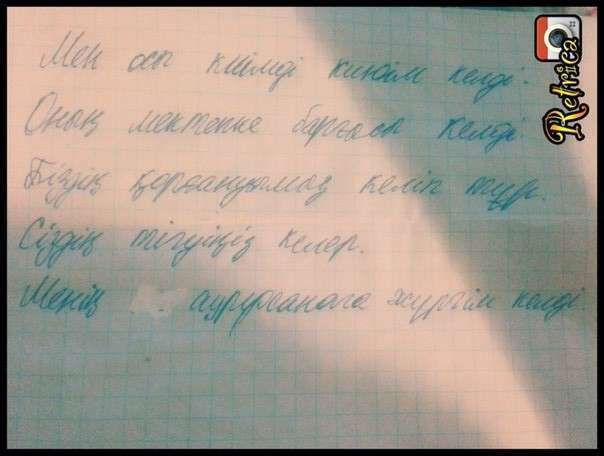 Мен осы киімді кигім келді.
Оның мектепке барғысы келді
Біздің қорғанғымыз келіп тұр.
Сіздің тіггіңіз келер.
Менің ауруханаға жургім келді
Retrica